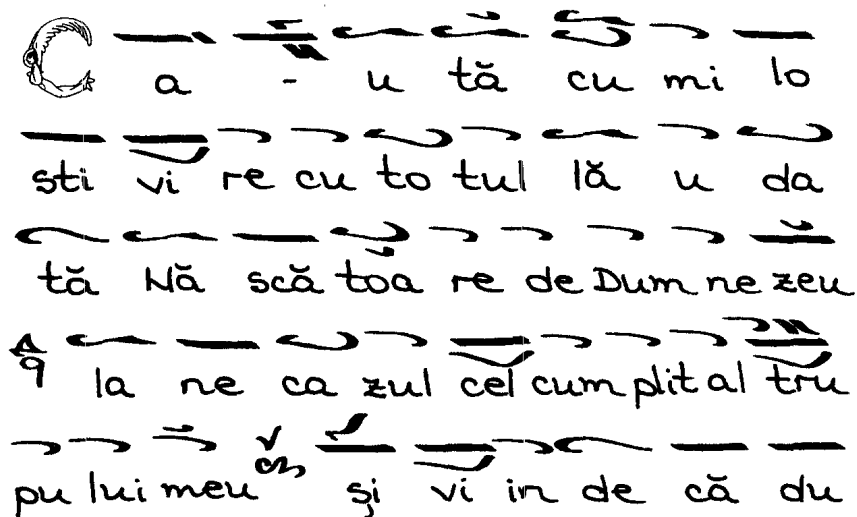 C a - u tă cu mi lo
sti vi re cu to tul lă u da
tă Nă scă toa re de Dum ne zeu
la ne ca zul cel cum plit al tru
pu lui meu și vi in de că du